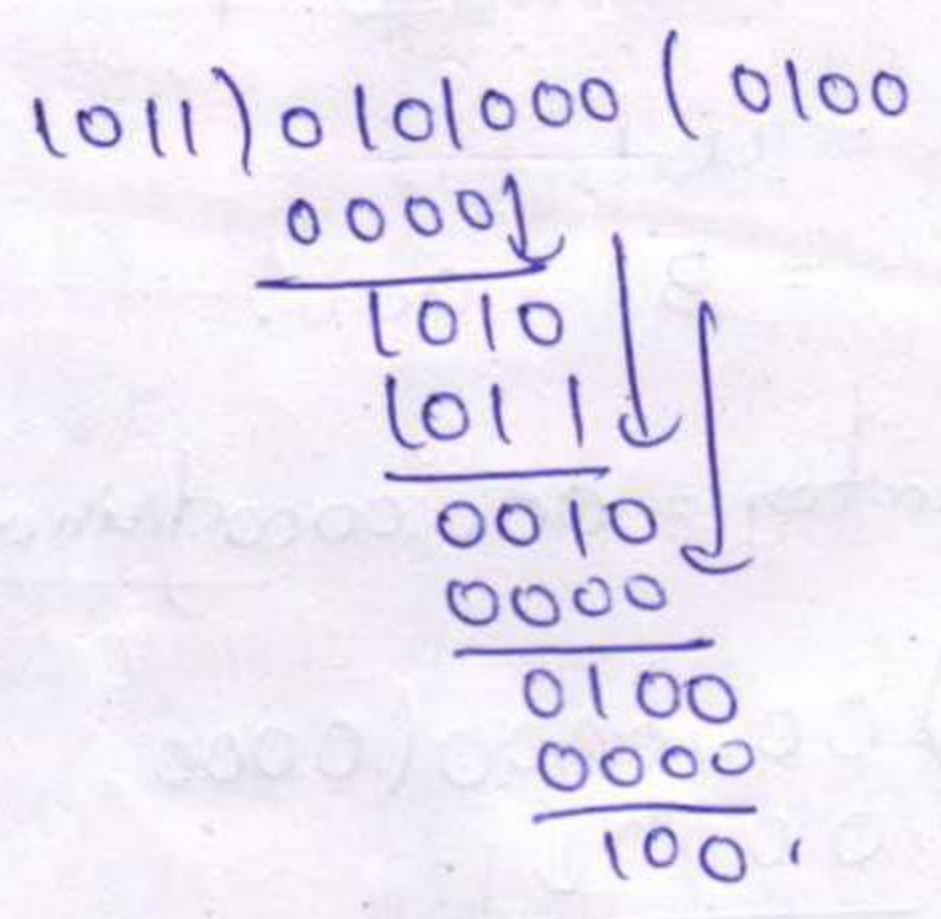 1011)0101000(0100
0000
1010
1011
0010
0000
0100
0000
100